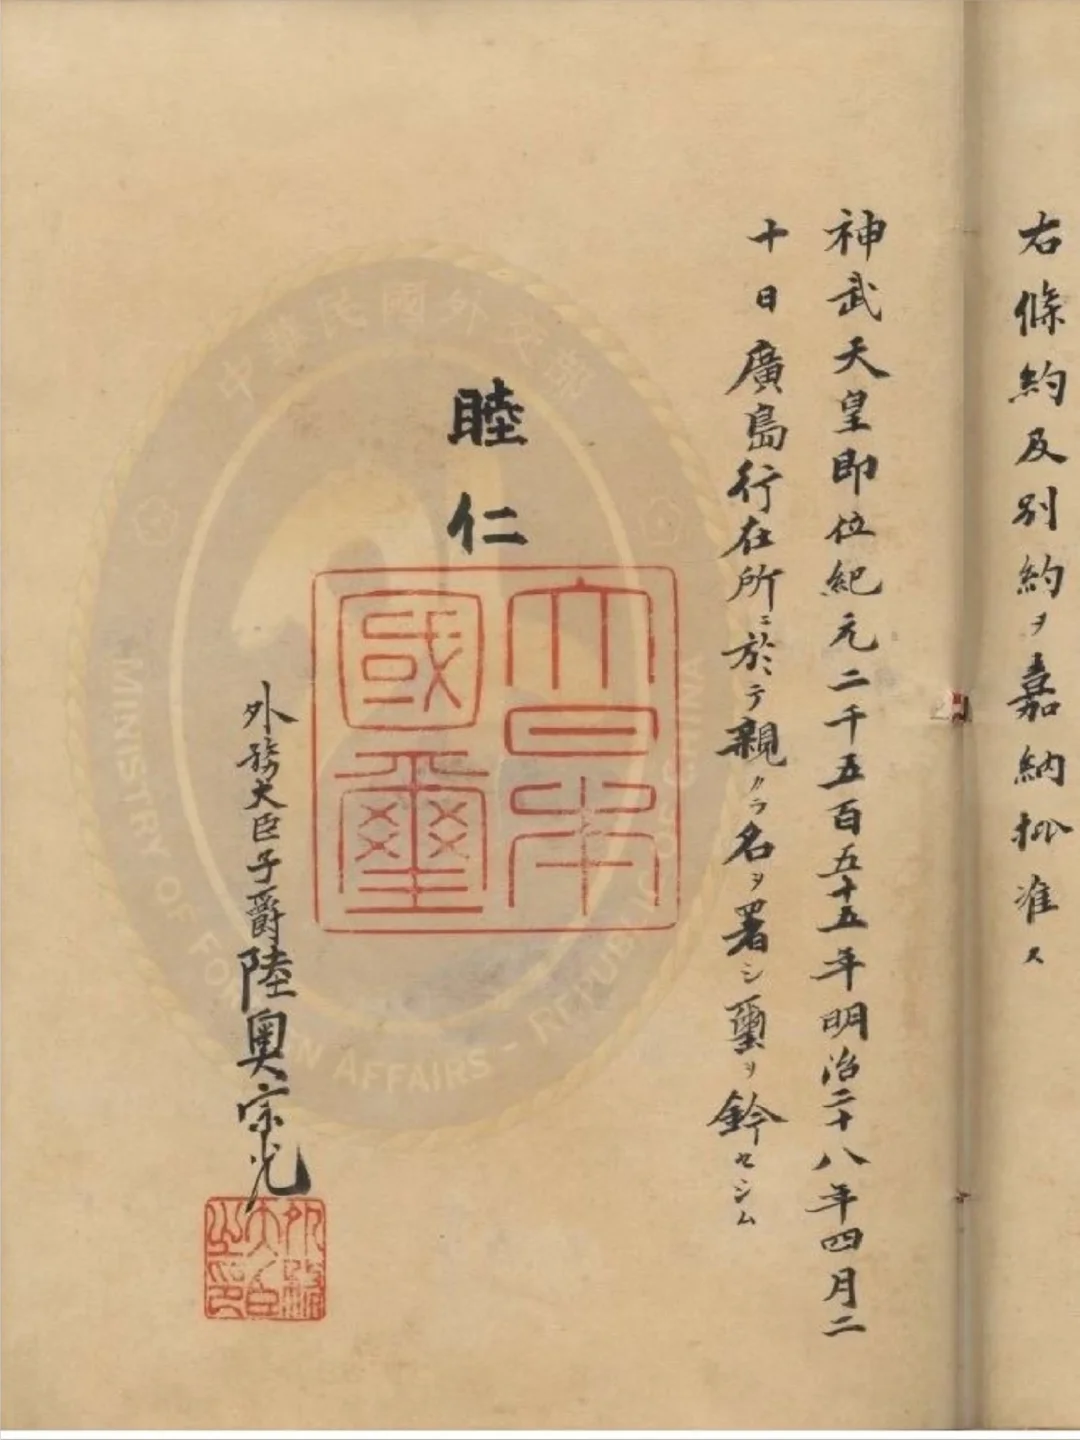 右條約及別約ヲ嘉納批准ス
神武天皇即位紀元二千五百五十五年明治二十八年四月二
十日廣島行在所ニ於テ親クヲ名ヲ署シ璽ヲ鈐セシム
睦仁
大日本
國璽
外務大臣子爵陸奧宗光
外務
大臣
之印
中華民國外交部
MINISTRY OF FOREIGN AFFAIRS - REPUBLIC OF CHINA